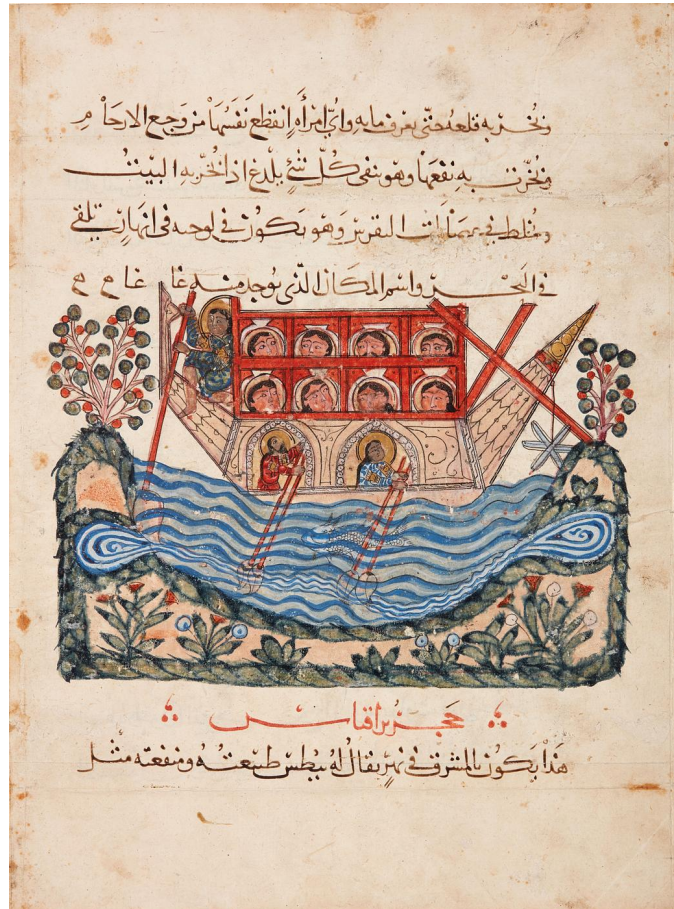 وبُخّر به قلعه حتّى يعرف ما به وأيّ امرأه انقطع نفسها من وجع الارحام
وبُخّرت به نفعها وهو ينفى كلّ شئ يلدغ اذا بُخّر به البيت
ويخلط في النقرس وهو يكون في لوجه في انهار تلقى
في البحر واسم المكان الّذى يوجد منه غاغا
حجر براقياس
هذا يكون بالمشرق في نهر يقال له طبيعته ومنفعته مثل